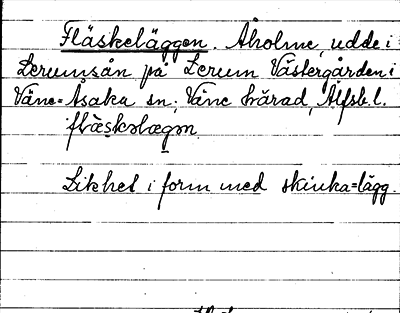 Fläskeläggen. Åholme, udde i
Lerumsån på Lerum Västergården i
Väne=Åsaka sn; Väne härad, Älfsb. l.
flæskəlægən
Likhet i form med skinka=lägg.